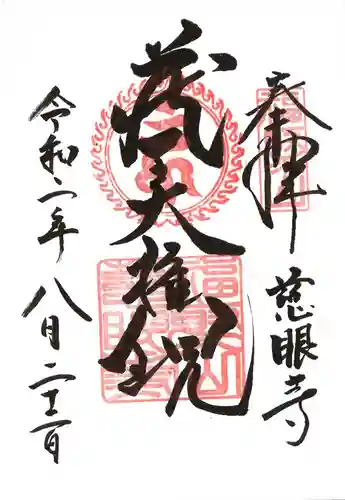 奉拝
慈眼寺
蔵王権現
令和二年八月二十二日